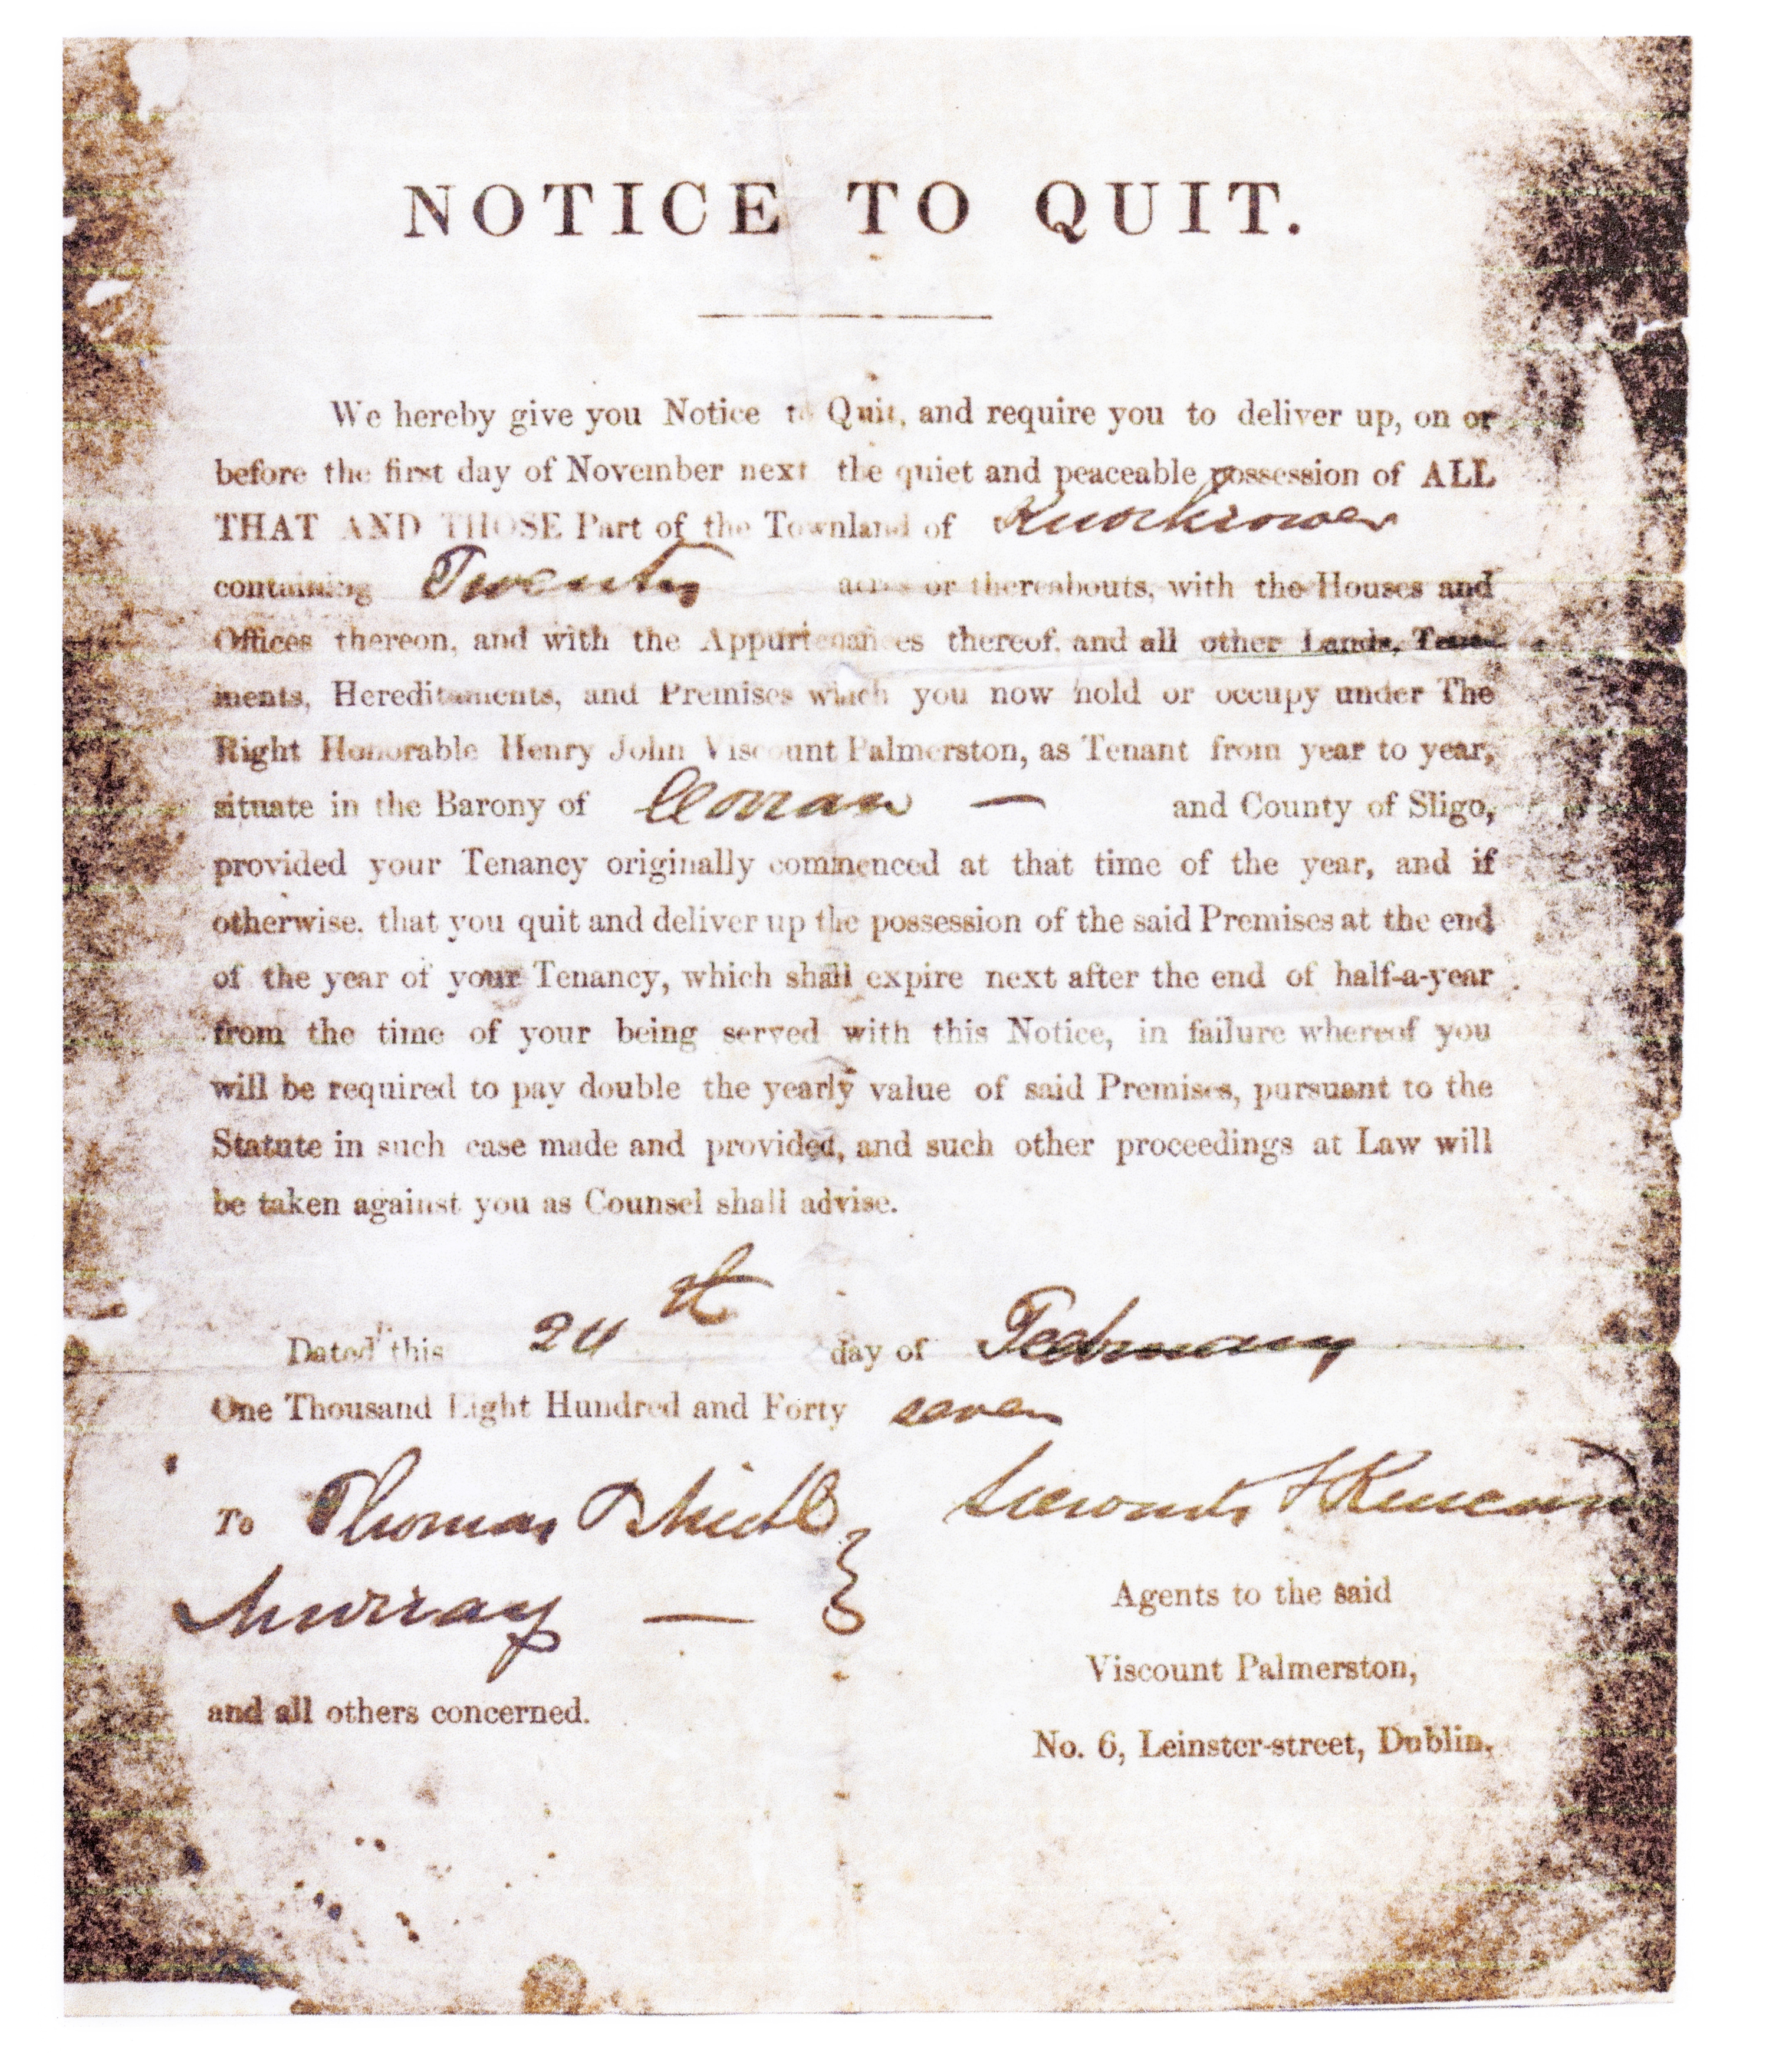 NOTICE TO QUIT.
We hereby give you Notice to Quit, and require you to deliver up, on or
before the first day of November next the quiet and peaceable possession of ALL
THAT AND THOSE Part of the Townland of
containing Twenty acres or thereabouts, with the Houses and
Offices thereon, and with the Appurtenances thereof, and all other Lands, Tene-
ments, Hereditaments, and Premises which you now hold or occupy under The
Right Honorable Henry John Viscount Palmerston, as Tenant from year to year,
situate in the Barony of Corran — and County of Sligo,
provided your Tenancy originally commenced at that time of the year, and if
otherwise, that you quit and deliver up the possession of the said Premises at the end
of the year of your Tenancy, which shall expire next after the end of half-a-year
from the time of your being served with this Notice, in failure whereof you
will be required to pay double the yearly value of said Premises, pursuant to the
Statute in such case made and provided, and such other proceedings at Law will
be taken against you as Counsel shall advise.
Dated this 24th day of February
One Thousand Eight Hundred and Forty seven
To Thomas
Murray —
Agents to the said
Viscount Palmerston,
and all others concerned.
No. 6, Leinster-street, Dublin.